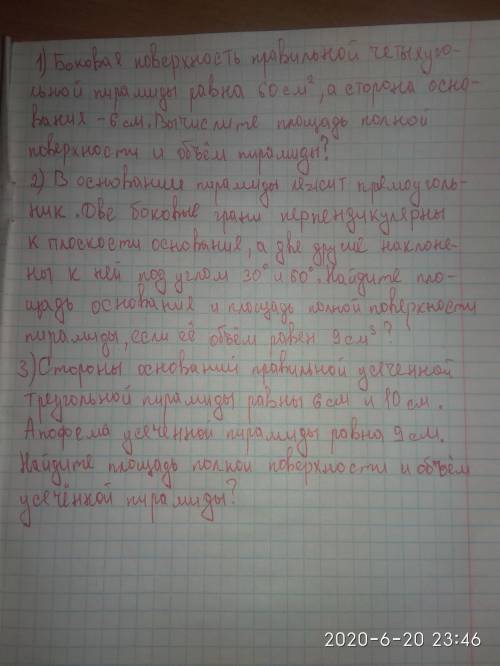 1) Боковая поверхность правильной четыхуго-
льной пирамиды равна 60 см², а сторона осно-
вания - 6 см. Вычислите площадь полной
поверхности и объём пирамиды?
2) В основании пирамиды лежит прямоуголь-
ник. Две боковые грани перпендикулярны
к плоскости основания, а две другие наклоне-
ны к ней под углом 30° и 60°. Найдите пло-
щадь основания и площадь полной поверхности
пирамиды, если её объём равен 9 см³?
3) Стороны оснований правильной усечённой
треугольной пирамиды равны 6 см и 10 см.
Апофема усечённой пирамиды равна 9 см.
Найдите площадь полной поверхности и объём
усечённой пирамиды?
2020-6-20 23:46